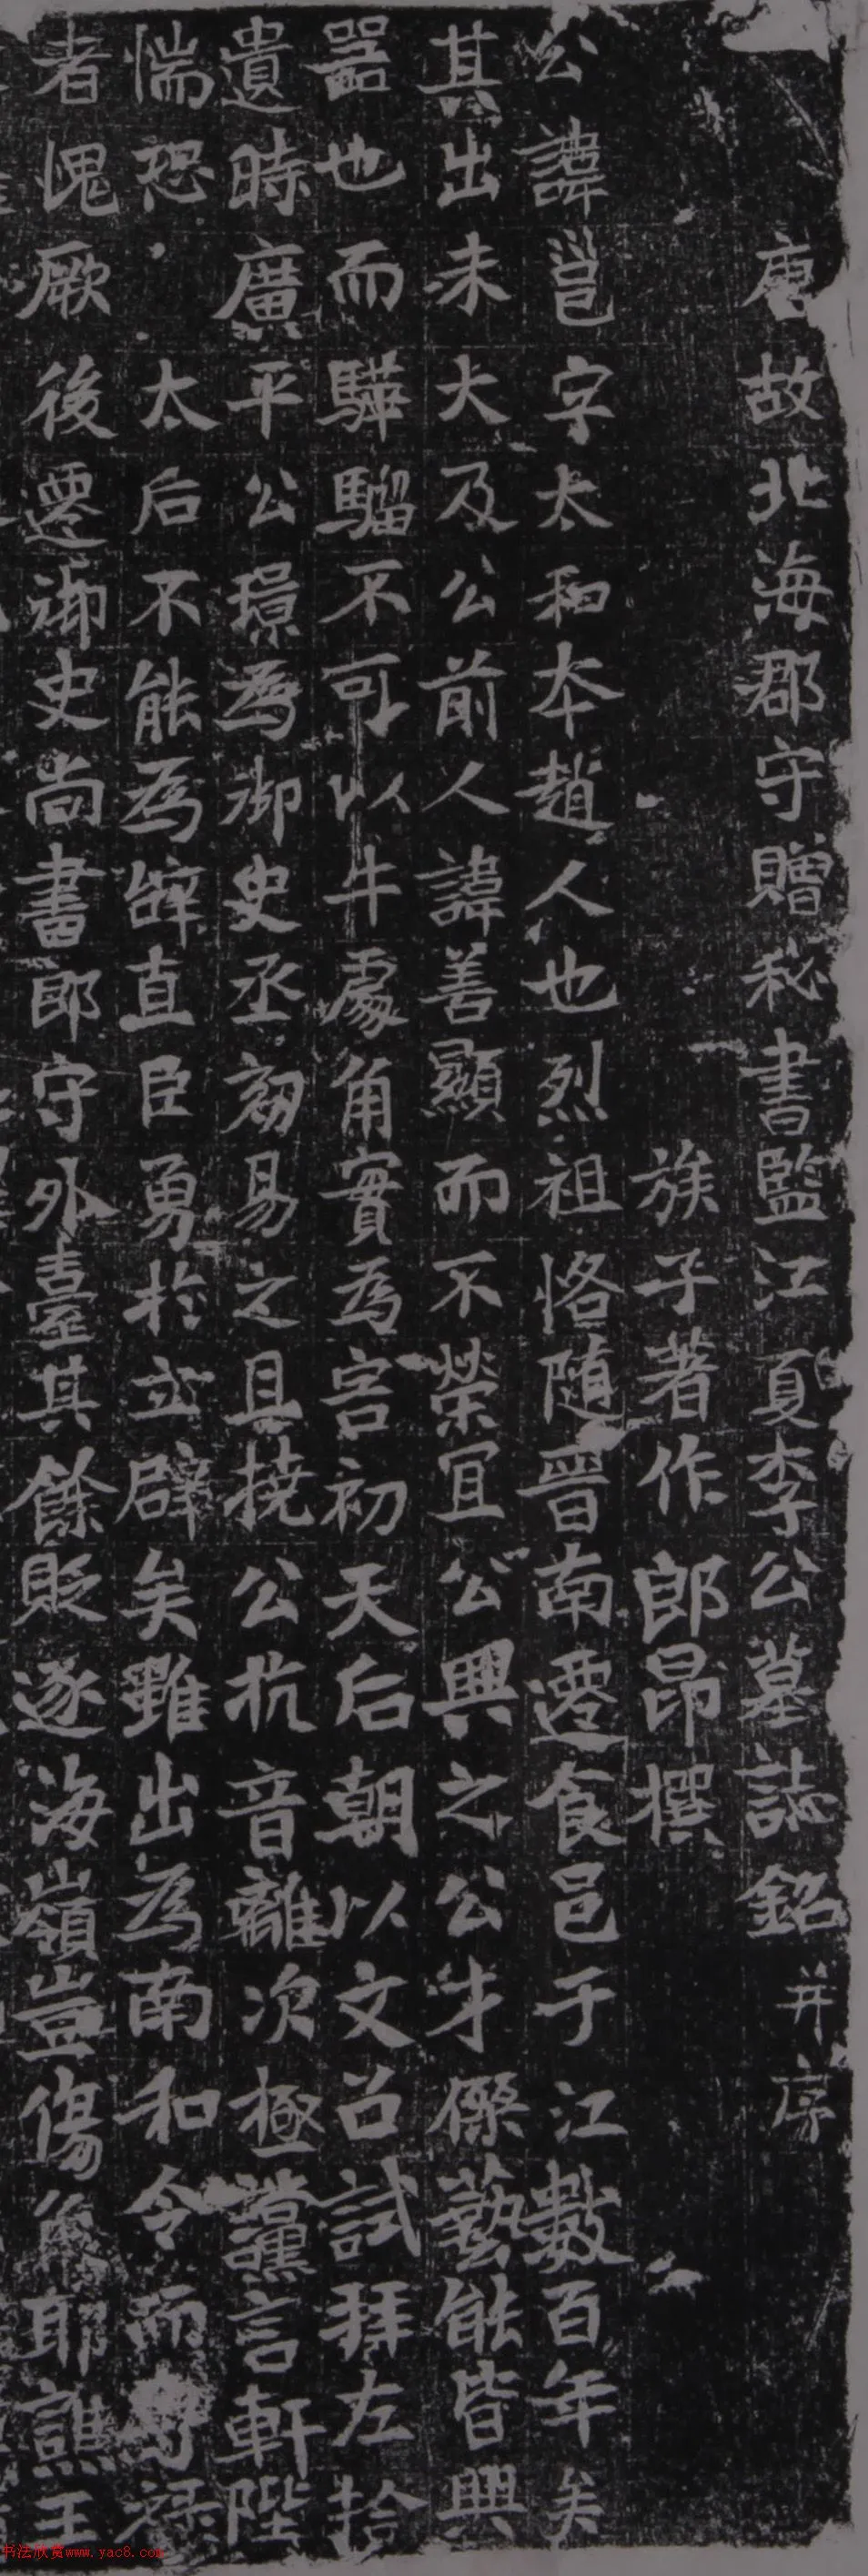 唐故北海郡守贈秘書監江夏李公墓誌銘并序
族子著作郎昂撰
公諱邕字太和本趙人也烈祖恪隨晉南遷食邑于江數百年矣
其出未大及公前人諱善顯而不榮冝公興之公才傑藝能皆興
器也而驊騮不可以牛處角實為害初天后朝以文召試拜左拾
遺時廣平公璟為御史丞劾易之且撓公抗音離次極讜言軒陛
惴恐太后不能為辭直臣勇於立辟矣雖出為南和令而
者愧厥後遷御史尚書郎守外臺其餘貶逐海嶺豈傷耶譙王
书法欣赏www.yac8.com